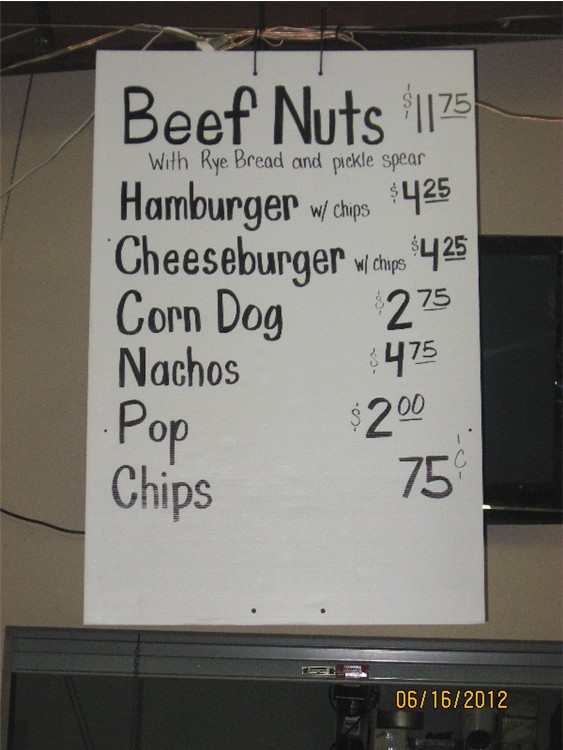 Beef Nuts $11 75
With Rye Bread and pickle spear
Hamburger w/ chips $4 25
Cheeseburger w/ chips $4 25
Corn Dog $2 75
Nachos $4 75
Pop $2 00
Chips 75¢
06/16/2012